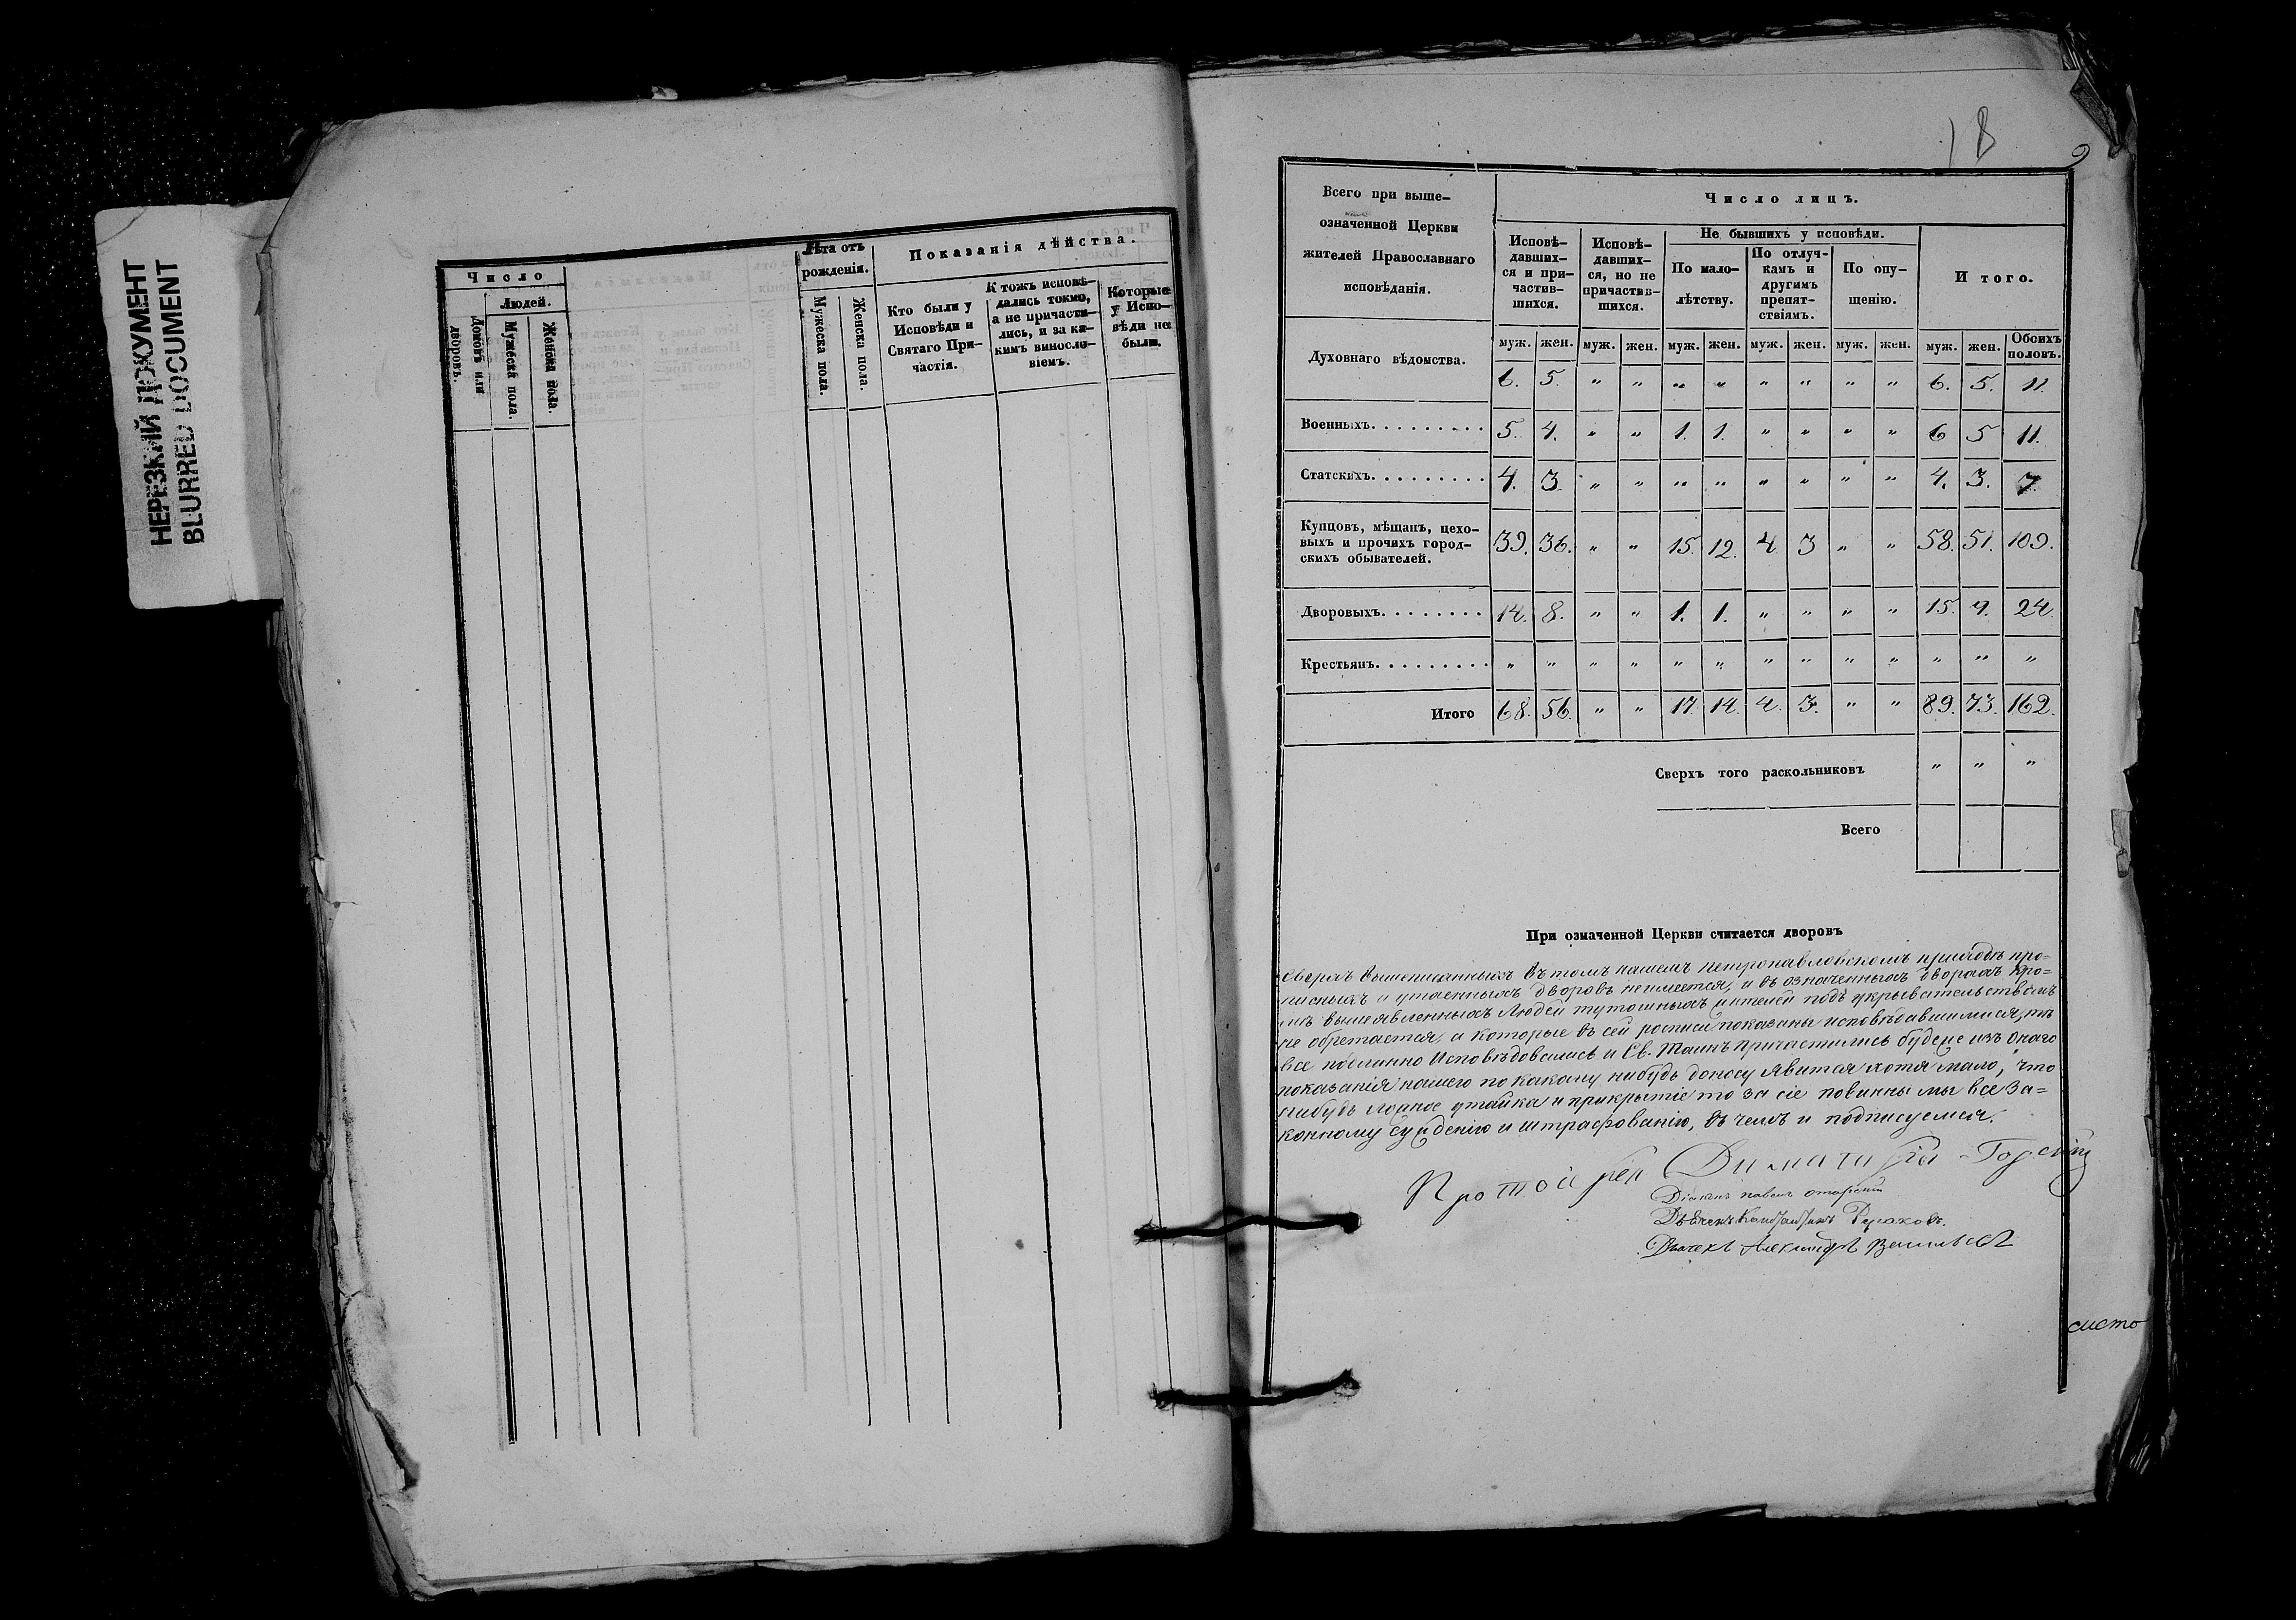 НЕРЕЗКИЙ ДОКУМЕНТ
BLURRED DOCUMENT
Число
Людей.
Домовъ или дворовъ.
Мужеска пола.
Женска пола.
Лѣта отъ рожденія.
Мужеска пола.
Женска пола.
Показанія дѣйства.
Кто были у
Исповѣди и
Святаго При-
частія.
К тожъ исповѣ-
дались токмо,
а не причасти-
лись, и за ка-
кимъ виносло-
віемъ.
Которые
у Испо-
вѣди не
были.
18
9
Всего при выше-
означенной Церкви
жителей Православнаго
исповѣданія.
Число лицъ.
Исповѣ-
давших-
ся и при-
частив-
шихся.
Исповѣ-
давших-
ся, но не
причастив-
шихся.
Не бывшихъ у исповѣди.
По мало-
лѣтству.
По отлуч-
камъ и
другимъ
препят-
ствіямъ.
По опу-
щенію.
Итого.
муж. жен. муж. жен. муж. жен. муж. жен. муж. жен. муж. жен. Обоихъ половъ.
Духовнаго вѣдомства. 6. 5. " " " " " " " " 6. 5. 11.
Военныхъ......... 5. 4. " " 1. 1. " " " " 6 5 11.
Статскихъ......... 4. 3. " " " " " " " " 4. 3. 7.
Купцовъ, мѣщанъ, цехо-
выхъ и прочихъ город-
скихъ обывателей. 39. 36. " " 15. 12. 4. 3 " " 58. 51. 109.
Дворовыхъ........ 14. 8. " " 1. 1. " " " " 15. 9. 24.
Крестьянъ......... " " " " " " " " " " " " "
Итого 68. 56. " " 17. 14. 4. 3. " " 89. 73. 162.
Сверхъ того раскольниковъ " " "
Всего
При означенной Церкви считается дворовъ
Сверхъ вышеписанныхъ въ томъ нашемъ петропавловскомъ приходѣ про-
писныхъ и утаенныхъ дворовъ неимеется, и въ означенныхъ дворахъ кро-
мѣ вышеявленныхъ Людей тутошныхъ жителей подъ укрывательствомъ
не обретается, а которые въ сей росписи показаны исповѣдавшимися, тѣ
все подлинно Исповѣдовались и Св. Таинъ Причастились будеже изъ онаго
показанія нашего по какому нибудь доносу явится хотя мало, что
нибудь ложное утайка и прикрытіе то за сіе повинны мы все за-
конному сужденію и штрафованію, въ чемъ и подписуемся.
Протоіерей Горскій
Діаконъ павелъ
Дьячекъ Константинъ
Дьячекъ Александръ Васильевъ